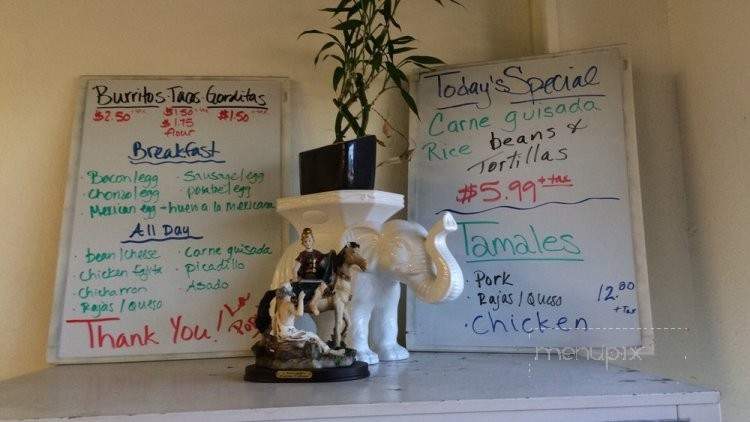 Burritos Tacos Gorditas
$2.50 $1.50 $1.50
$1.75
flour
Breakfast
· Bacon/egg · Sausage/egg
· Chorizo/egg · potatoe/egg
· Mexican egg - huevo a la mexicana
All Day
· bean/cheese · Carne guisada
· Chicken fajita · Picadillo
· Chicharron · Asado
· Rajas/Queso
Thank You!
Today's Special
Carne guisada
Rice beans &
Tortillas
$5.99 + tax
Tamales
· Pork
· Rajas/Queso 12.00
+ Tax
· Chicken
menupix